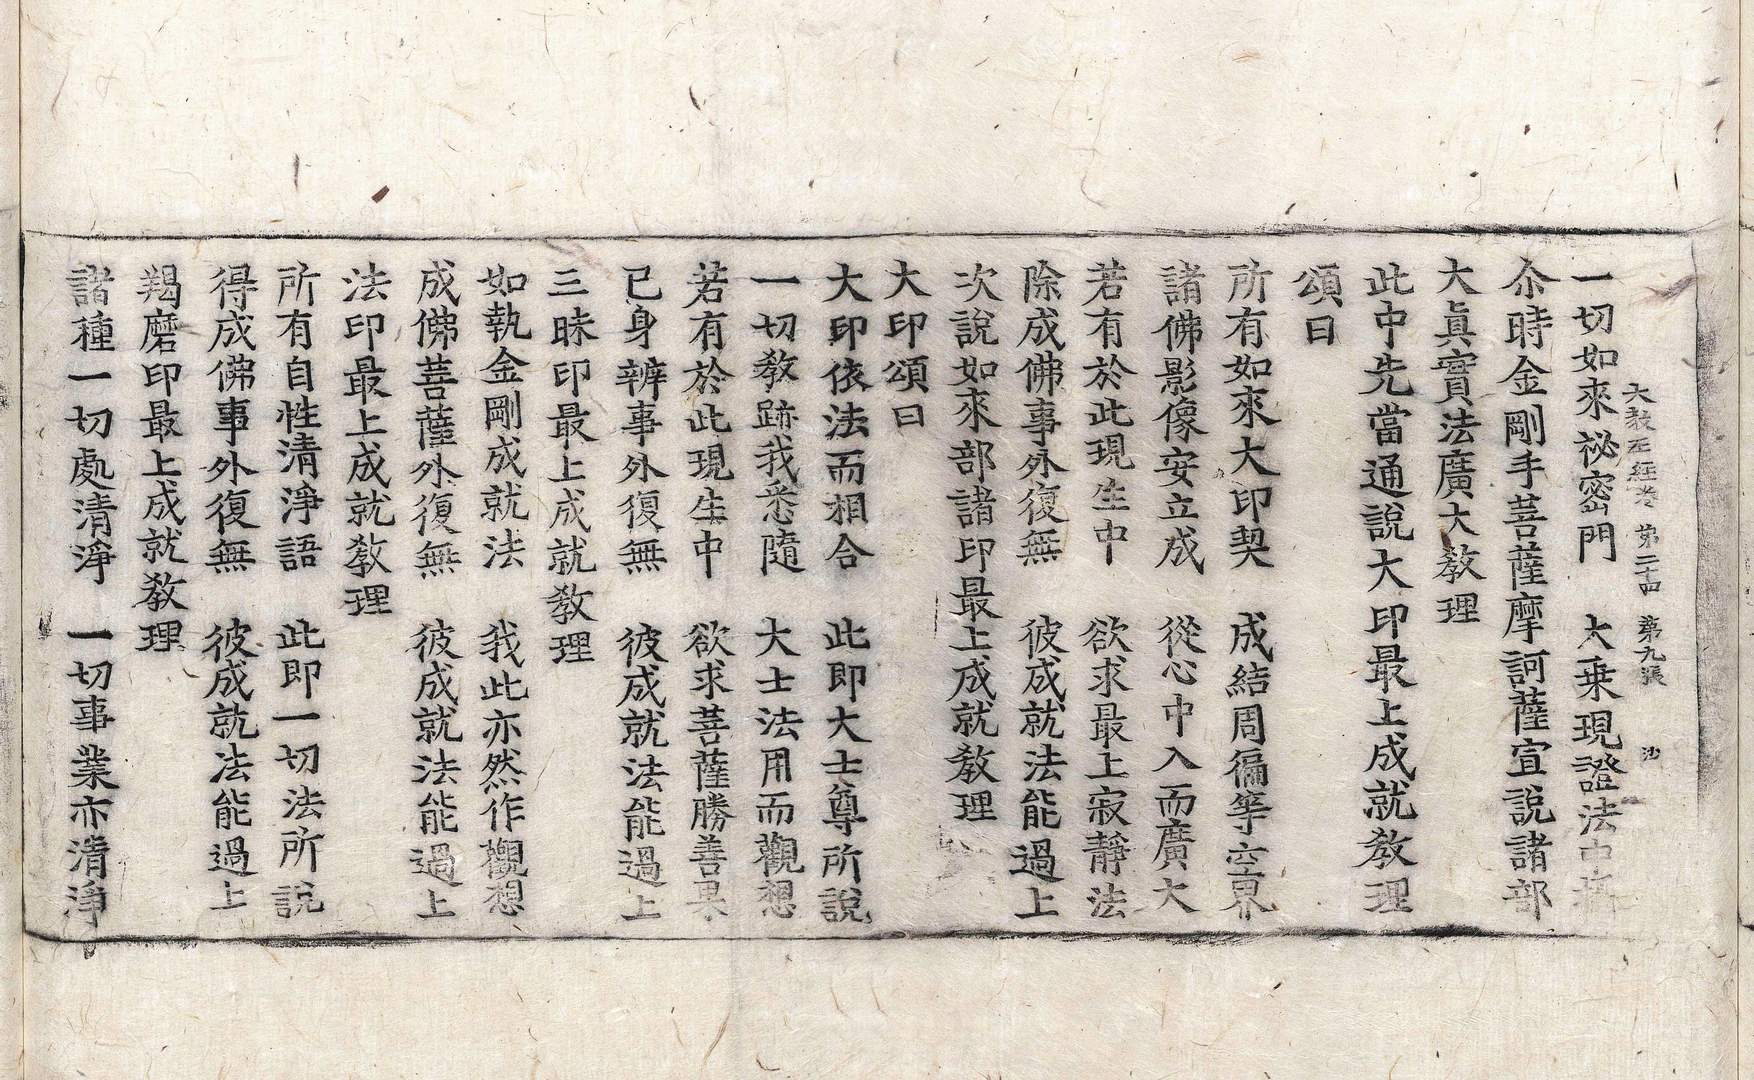 大教王経卷 第二十四 第九張 沙
一切如來祕密門 大乗現證法中
尒時金剛手菩薩摩訶薩宣說諸部
大眞實法廣大敎理
此中先當通說大印最上成就敎理
頌曰
所有如來大印契 成結周徧等空界
諸佛影像安立成 從心中入而廣大
若有於此現生中 欲求最上寂靜法
除成佛事外復無 彼成就法能過上
次說如來部諸印最上成就敎理
大印頌曰
大印依法而相合 此即大士尊所說
一切敎跡我悉隨 大士法用而觀想
若有於此現生中 欲求菩薩勝善果
已身辦事外復無 彼成就法能過上
三昧印最上成就敎理
如執金剛成就法 我此亦然作觀想
成佛菩薩外復無 彼成就法能過上
法印最上成就敎理
所有自性清淨語 此即一切法所說
得成佛事外復無 彼成就法能過上
羯磨印最上成就敎理
諸種一切處清淨 一切事業亦清淨